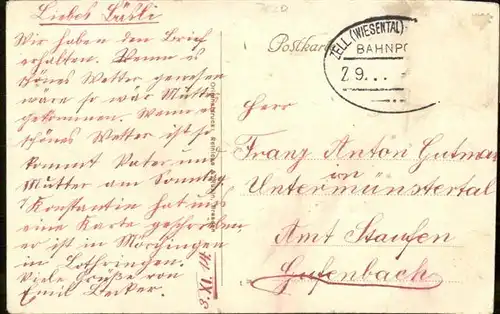 Liebes Bäsli
Wir haben den Brief
erhalten. Wenn es
schönes Wetter gewesen
wäre so wär Mutter
gekommen. Wenn es
schönes Wetter ist so
kommt Vater und
Mutter am Sonntag
Konstantin hat uns
eine Karte geschrieben
er ist in Mörchingen
in Lothringen.
Viele Grüße von
Emil Decker.
Postkar
ZELL (WIESENTAL)
BAHNPO
29...
Herr
Franz Anton Gutman
in
Untermünstertal
Amt Staufen
Gufenbach